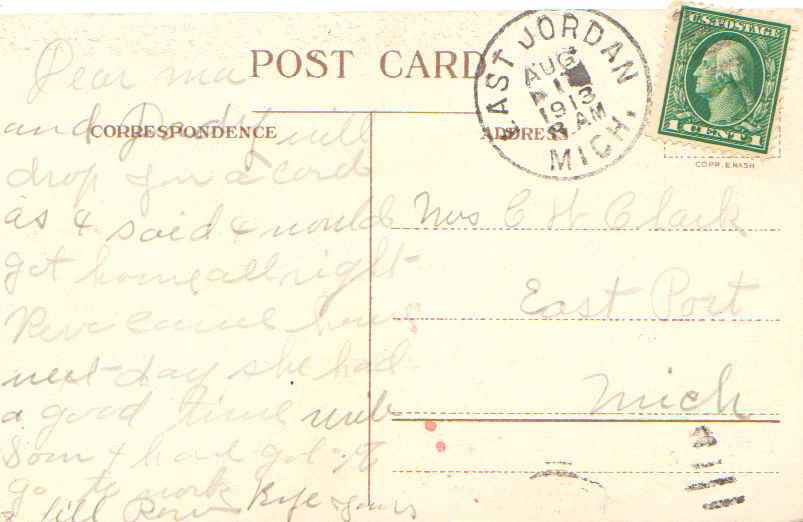 POST CARD
EAST JORDAN
AUG
1
1913
8 AM
MICH.
U.S. POSTAGE
1 CENT 1
COPR. E. NASH
CORRESPONDENCE
ADDRESS
Dear ma
and Dad I will
drop you a card
as I said I would
got home all right
came home
next day she had
a good time
I have got to
go to work
Bye yours
Mrs C H Clark
East Port
Mich